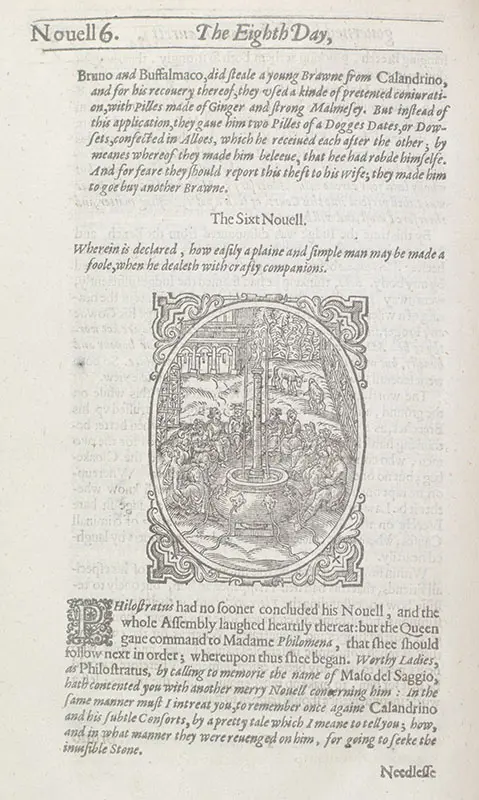 Nouell 6. The Eighth Day,
Bruno and Buffalmaco, did steale a young Brawne from Calandrino,
and for his recouery thereof, they vsed a kinde of pretented coniurati-
on, with Pilles made of Ginger and strong Malmesey. But instead of
this application, they gaue him two Pilles of a Dogges Dates, or Dow-
sets, confected in Alloes, which he receiued each after the other; by
meanes whereof they made him beleeue, that hee had robde himselfe.
And for feare they should report this theft to his Wife; they made him
to goe buy another Brawne.
The Sixt Nouell.
Wherein is declared, how easily a plaine and simple man may be made a
foole, when he dealeth with crafty companions.
PHilostratus had no sooner concluded his Nouell, and the
whole Assembly laughed heartily thereat: but the Queen
gaue command to Madame Philomena, that shee should
follow next in order; whereupon thus shee began. Worthy Ladies,
as Philostratus, by calling to memorie the name of Maso del Saggio,
hath contented you with another merry Nouell concerning him: In the
same manner must I intreat you, to remember once againe Calandrino
and his subtle Consorts, by a pretty tale which I meane to tell you; how,
and in what manner they were reuenged on him, for going to seeke the
inuisible Stone.
Needlesse